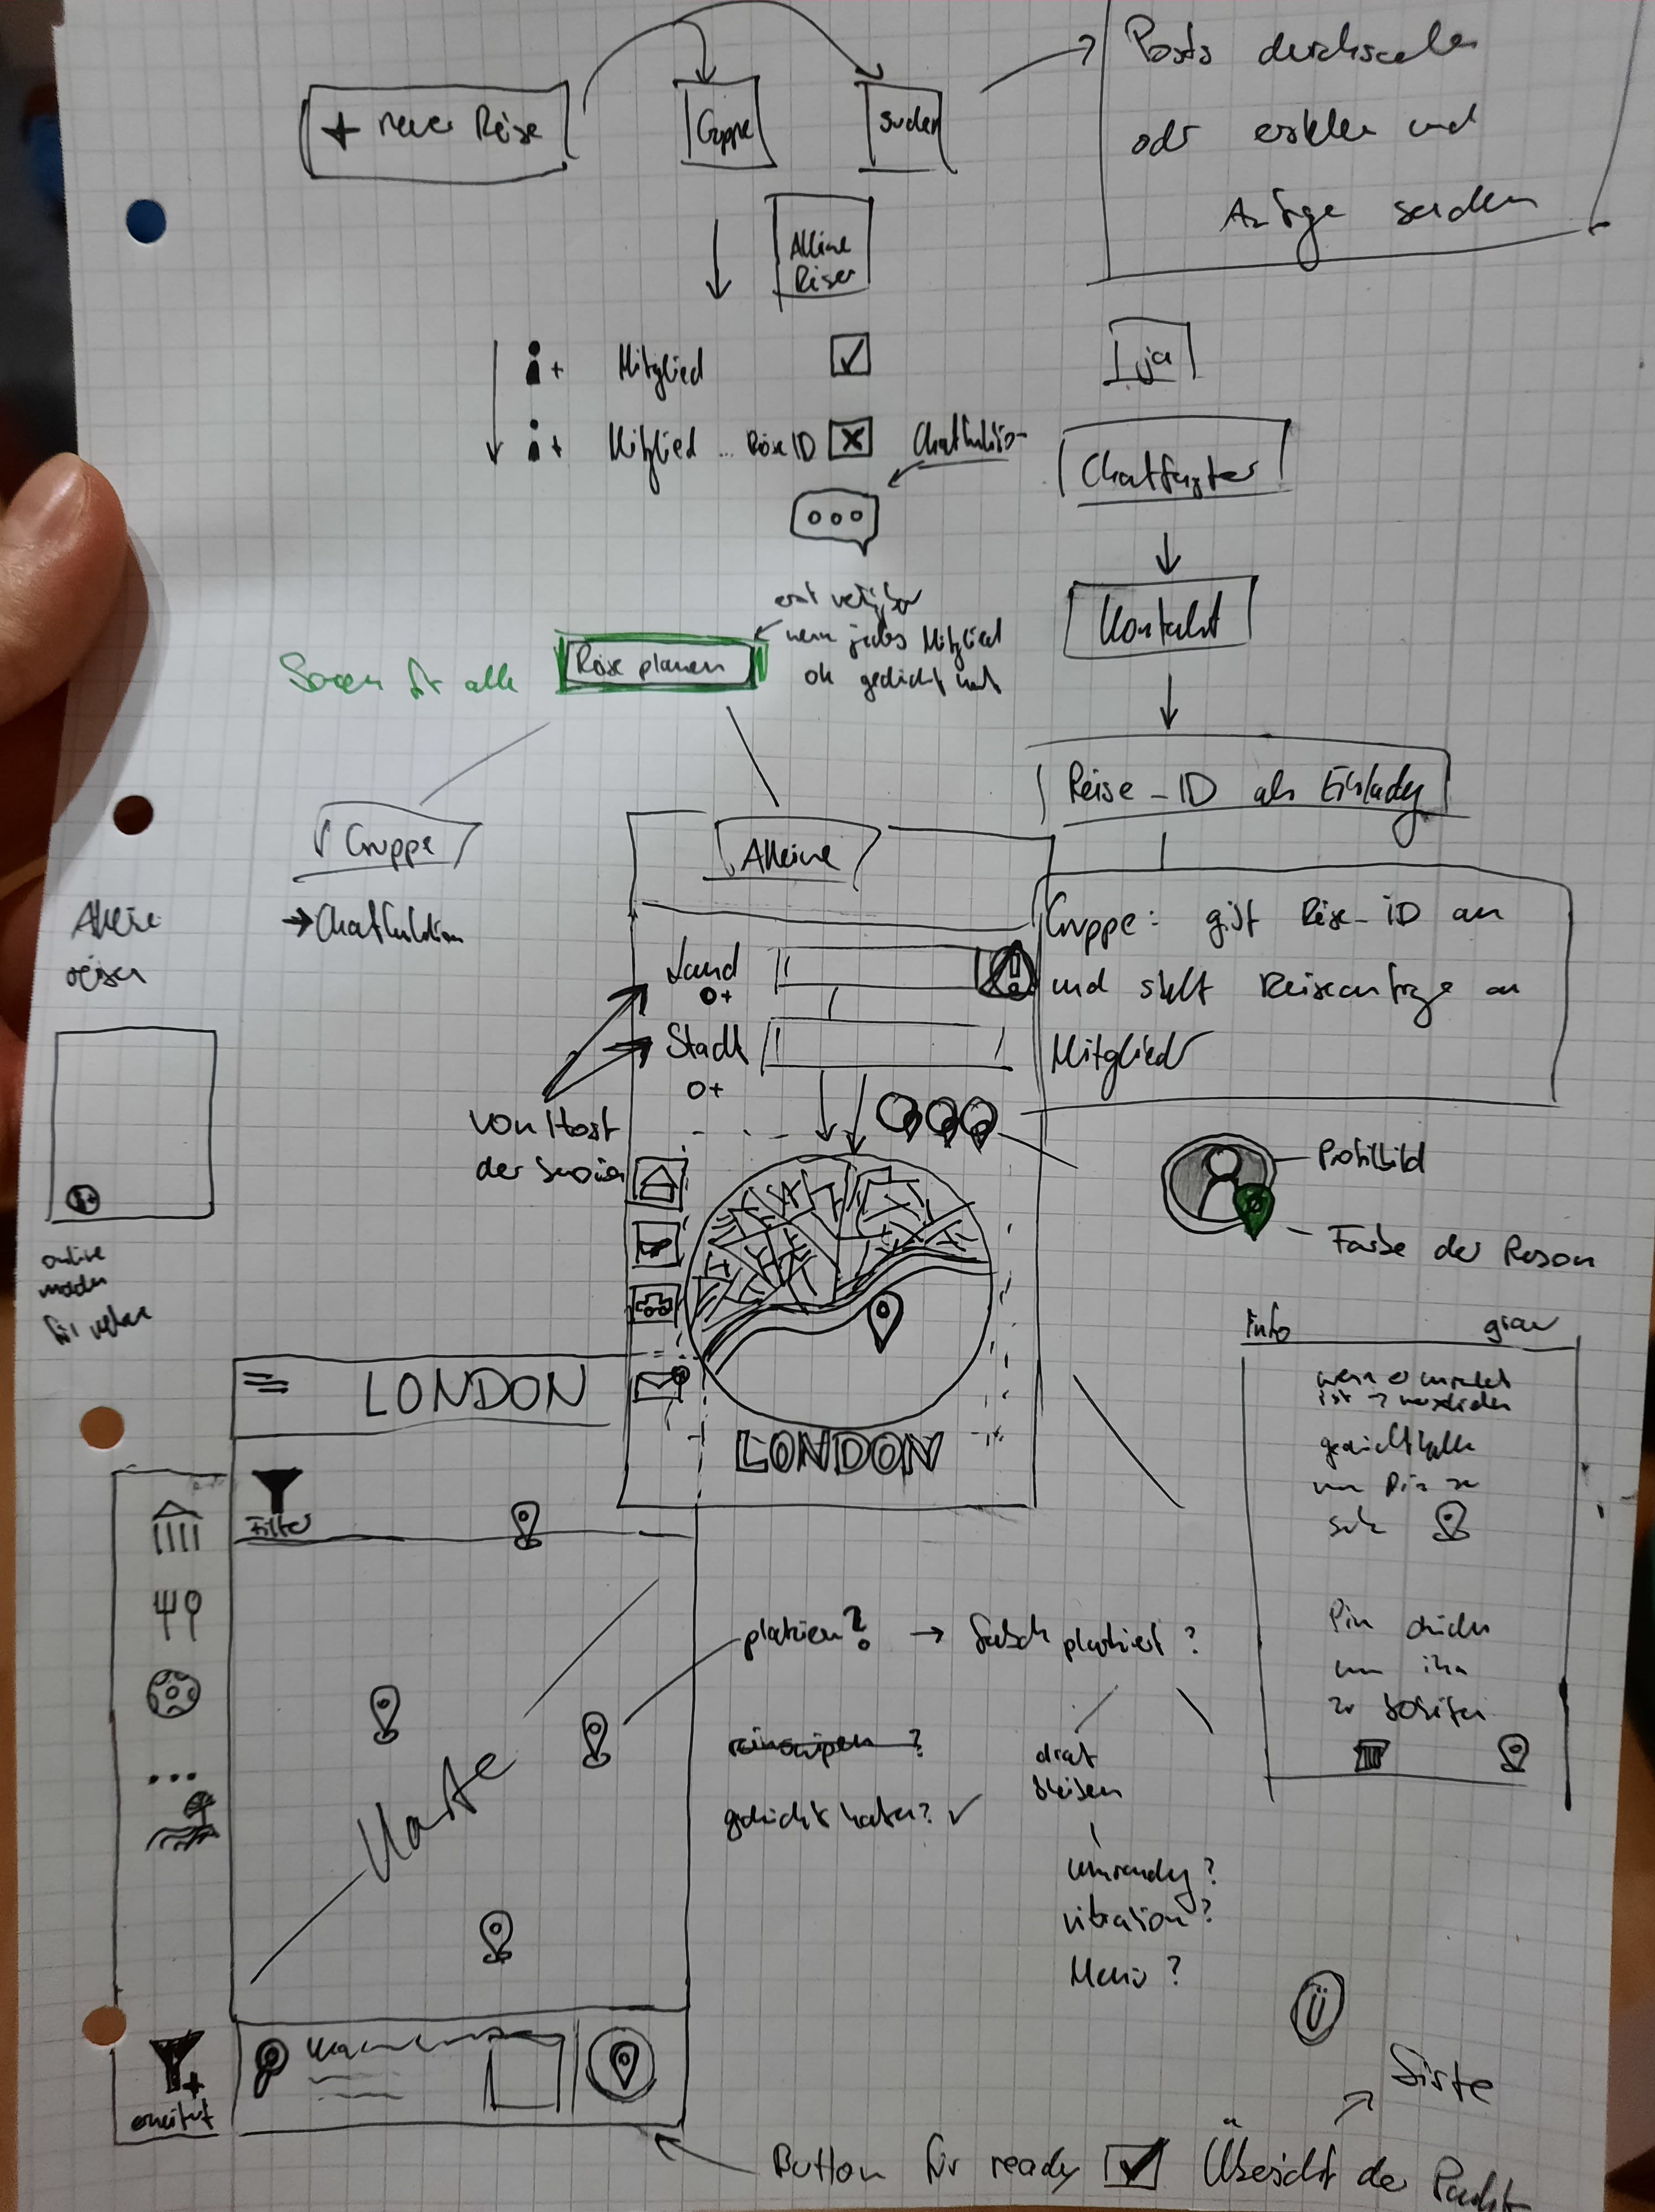 + neue Reise
Gruppe
suchen
Posts durchsuchen
oder erstellen und
Anfrage senden
Alleine
Reisen
Mitglied
ja
Mitglied ... Reise ID
Chatfunktion
Chatfenster
Kontakt
erst verfügbar
wenn jedes Mitglied
ok gedrückt hat
Screen für alle
Reise planen
Reise-ID als Einladung
Gruppe
→ Chatfunktion
Alleine
Gruppe: gibt Reise-ID an
und stellt Reiseanfrage an
Mitglied
Alleine
reisen
Land
Stadt
von Host
der
Profilbild
Farbe der Person
online
Info
LONDON
LONDON
Filter
gedrückt halten
um Pin zu
Pin drücken
um ihn
zu
platzieren? → falsch platziert?
reinswipen?
gedrückt halten? ✓
drauf
bleiben
Umrandung?
vibration?
Menü?
Karte
Ü
Liste
erweitert
Button für ready
Übersicht der